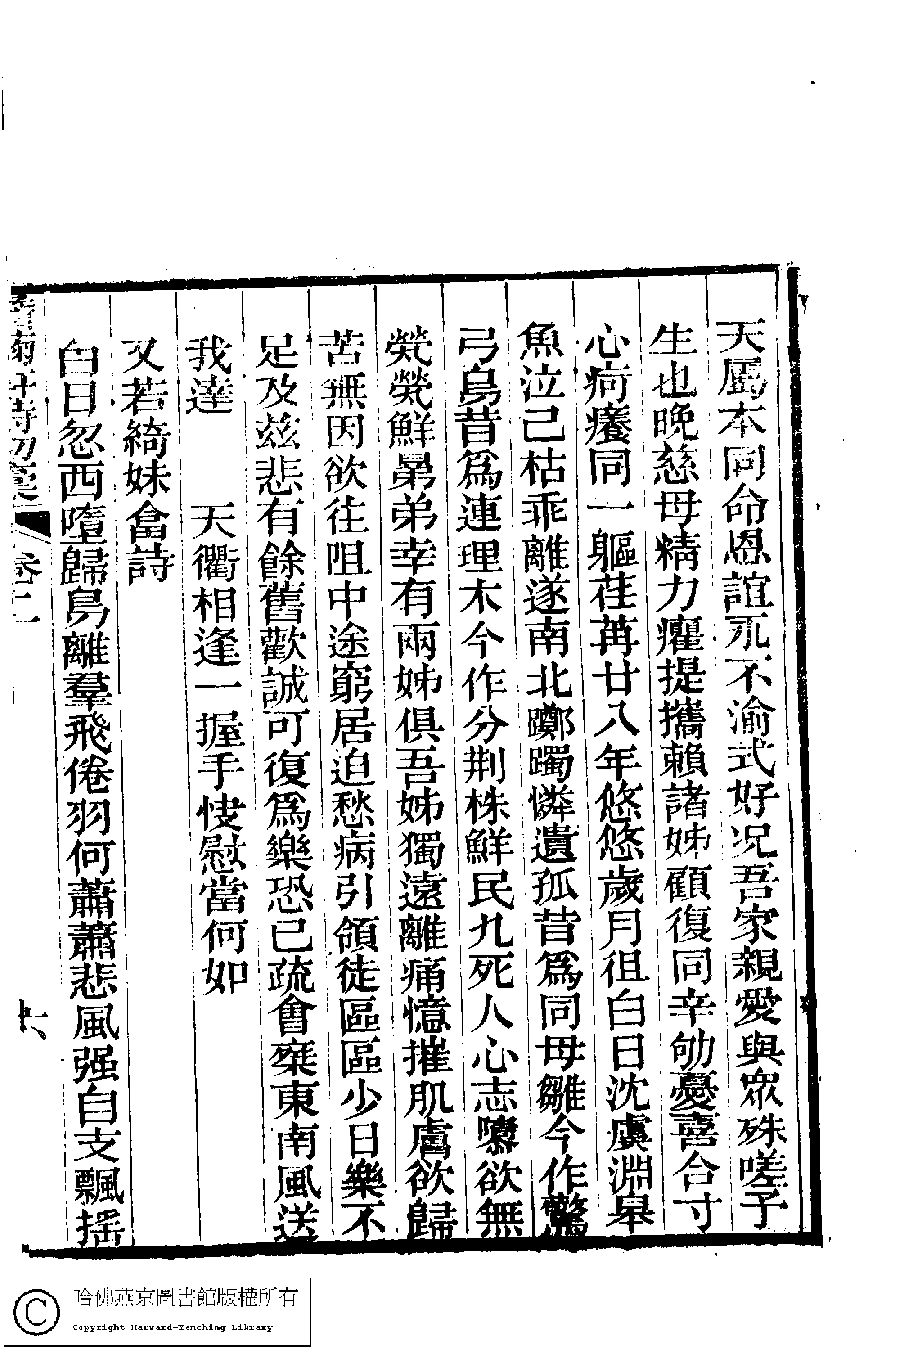 天屬本同命恩誼永不渝式好况吾家親愛與眾殊嗟予
生也晚慈母精力癯提攜賴諸姊顧復同辛劬憂喜合寸
心疴癢同一軀荏苒廿八年悠悠歲月徂白日沈虞淵皋
魚泣已枯乖離遂南北躑躅憐遺孤昔爲同母雛今作驚
弓鳥昔爲連理木今作分荆株鮮民九死人心志欲無
煢煢鮮晜弟幸有兩姊俱吾姊獨遠離痛憶摧肌膚欲歸
苦無因欲往阻中途窮居迫愁病引領徒區區少日樂不
足及茲悲有餘舊歡誠可復爲樂恐已疏會乘東南風送
我達　　天衢相逢一握手快慰當何如
又若綺妹畣詩
白日忽西墮歸鳥離羣飛倦羽何蕭蕭悲風强自支飄摇
菊軒詩初稾　卷二
哈佛燕京圖書館版權所有
Copyright Harvard-Yenching Library